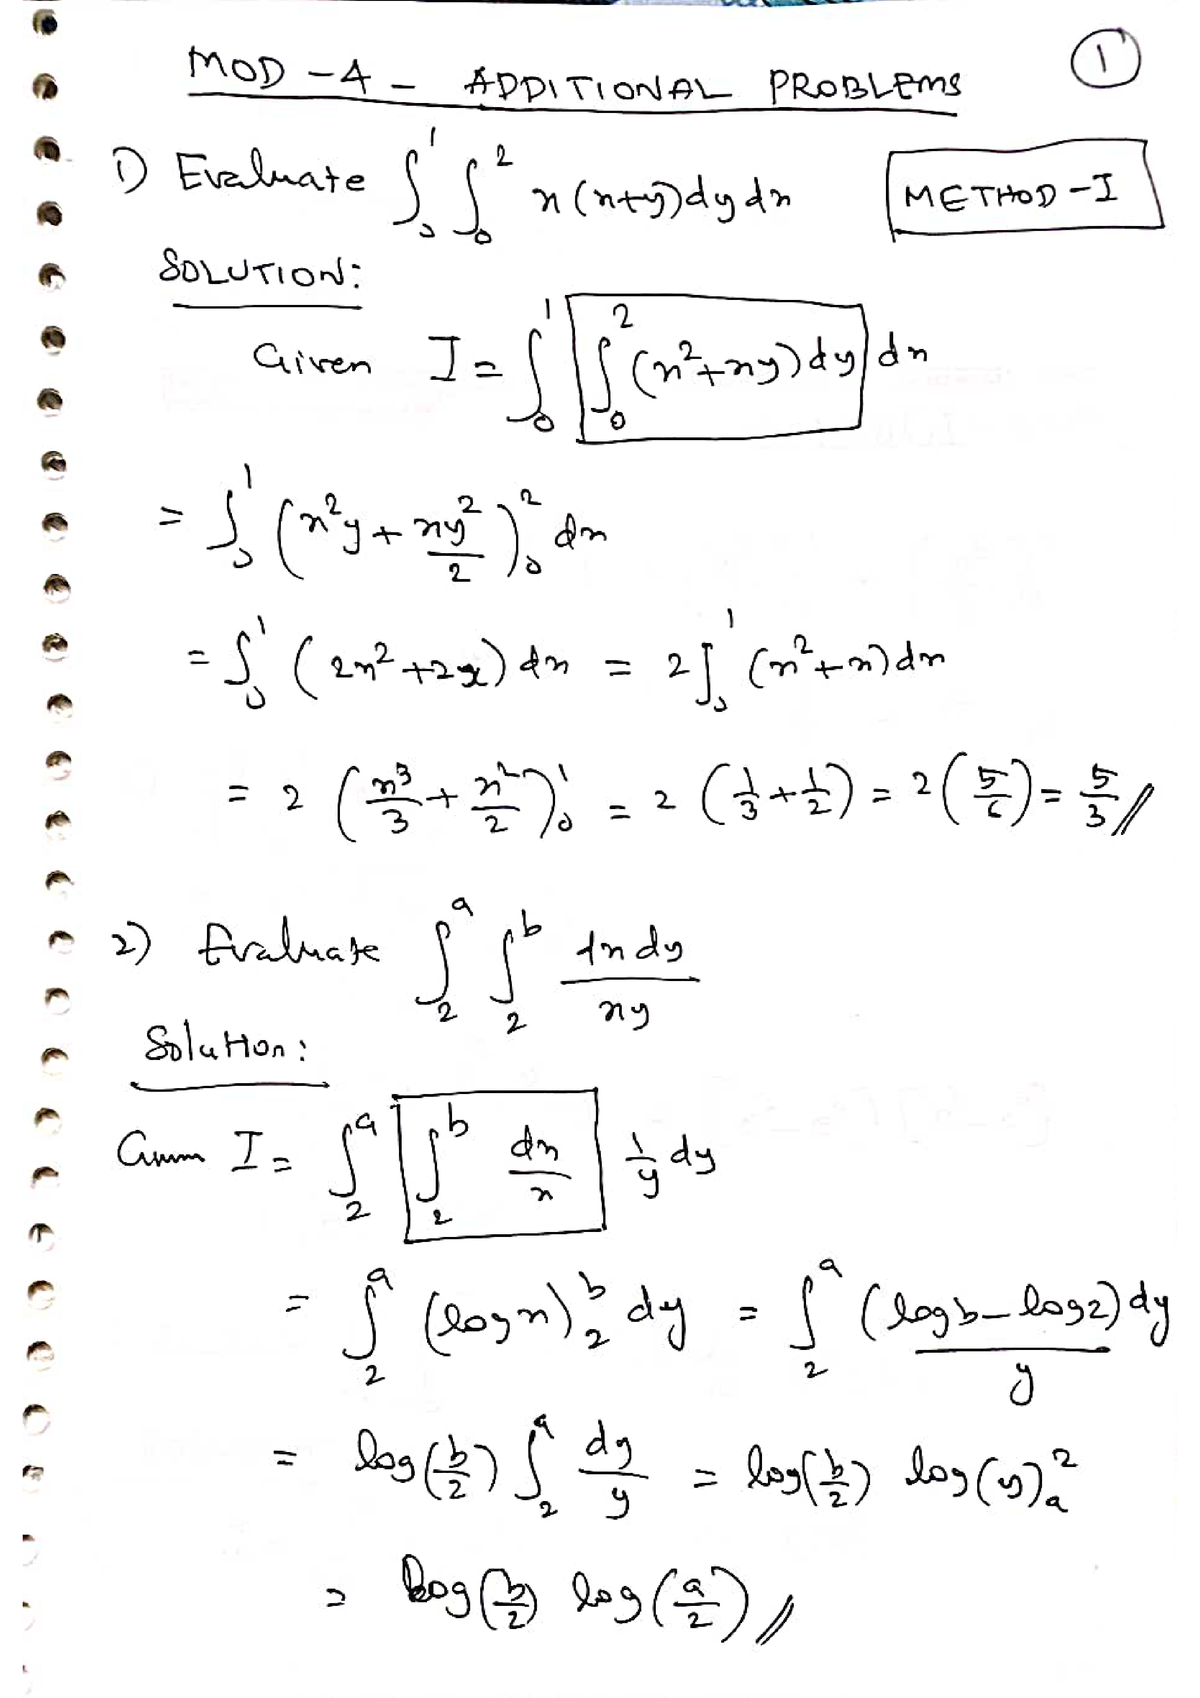 MOD - 4 - ADDITIONAL PROBLEMS 1
1) Evaluate ∫₀¹ ∫₀² x(x+y)dydx METHOD - I
SOLUTION:
Given I = ∫₀¹ ∫₀² (x²+xy)dy dx
= ∫₀¹ (x²y + xy²/2)₀² dx
= ∫₀¹ (2x²+2x) dx = 2∫₀¹ (x²+x)dx
= 2 (x³/3 + x²/2)₀¹ = 2 (1/3+1/2) = 2(5/6) = 5/3 //
2) Evaluate ∫₂ᵃ ∫₂ᵇ dxdy/xy
Solution:
Given I = ∫₂ᵃ ∫₂ᵇ dx/x 1/y dy
= ∫₂ᵃ (logx)₂ᵇ dy = ∫₂ᵃ (logb-log2)dy/y
= log(b/2) ∫₂ᵃ dy/y = log(b/2) log(y)ₐ²
= log(b/2) log(a/2) //